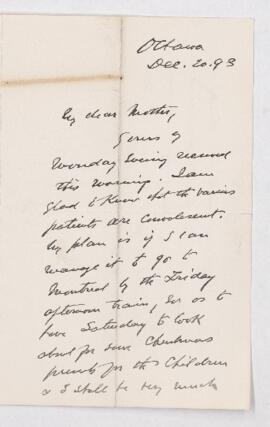 Ottawa
Dec. 20. 93
My dear Mother,
Yours of
Monday evening received
this morning. I am
glad to know that the various
patients are convalescent.
My plan is if I can
manage it to go to
Montreal by the Friday
afternoon train, so as to
have Saturday to look
about for some Christmas
presents for the Children
& I shall be very much